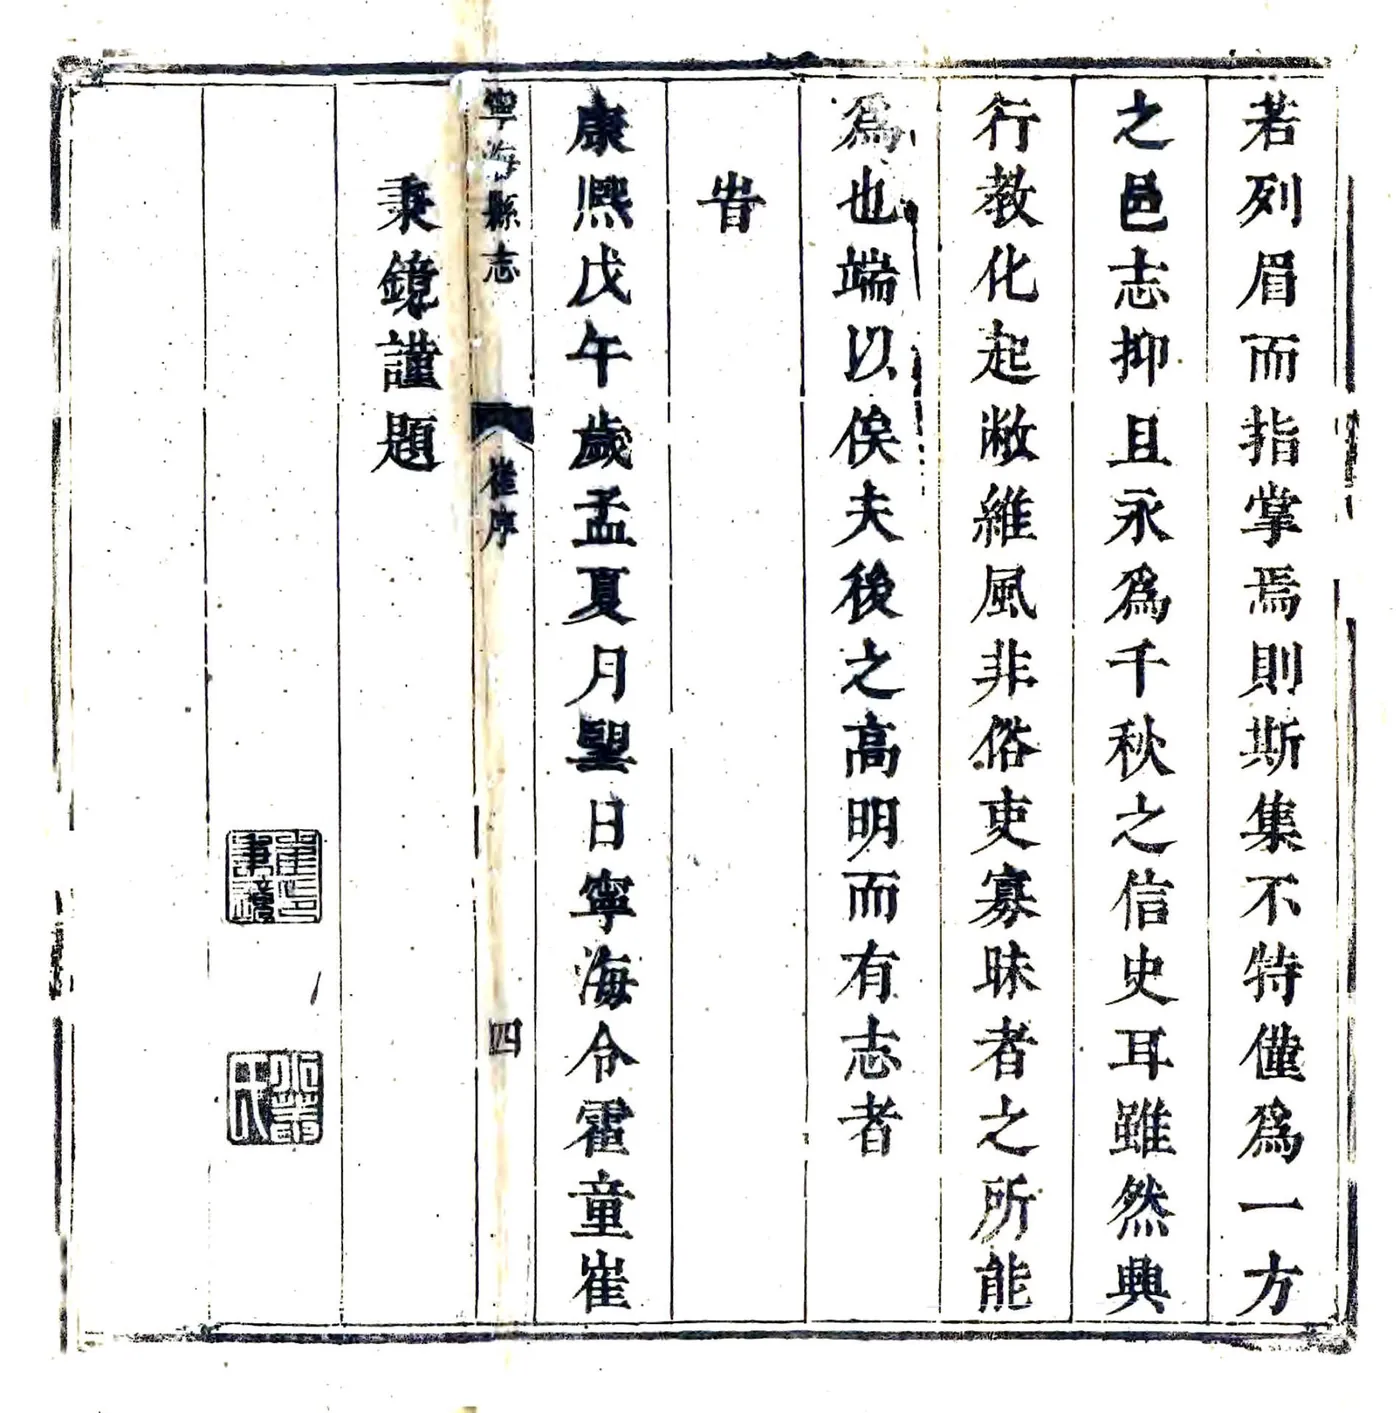 若列眉而指掌焉則斯集不特僅爲一方
之邑志抑且永爲千秋之信史耳雖然興
行教化起敝維風非俗吏寡昧者之所能
爲也端以俟夫後之高明而有志者
旹
康熈戊午歲孟夏月朢日寧海令霍童崔
寧海縣志
崔序
四
秉鏡謹題
崔印秉鏡
氏